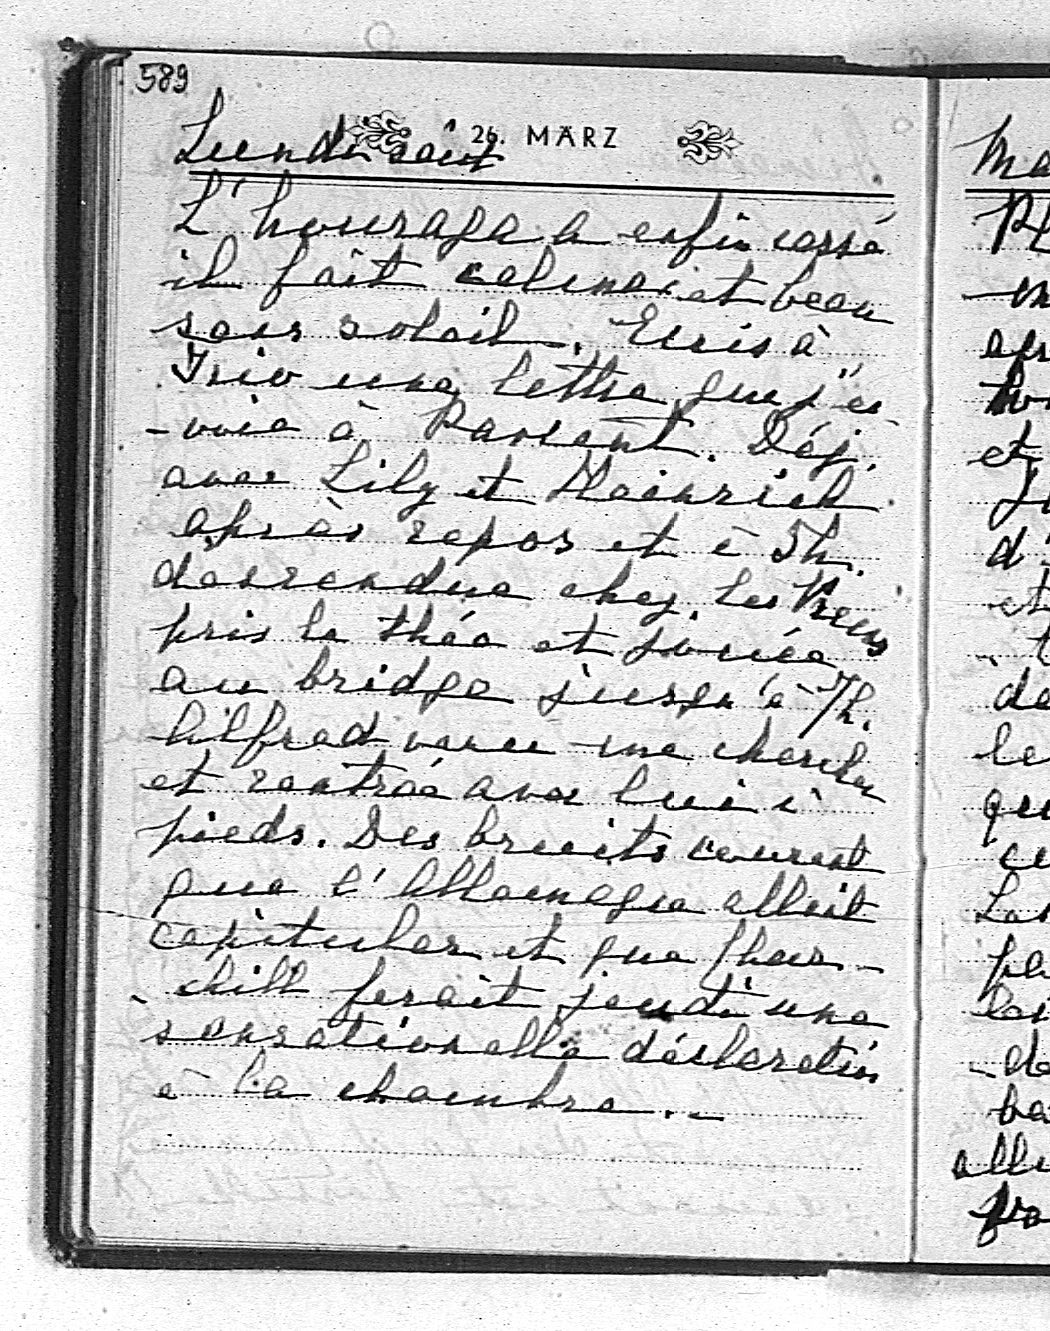 589
26. MÄRZ
Lundi soir
L'houraga a enfin cessé
il fait calme et beau
sous soleil. Ecris à
une lettre que j'en
-voie à Parent. Déj.
avec Lily et Heinrich
après repos et à 5h.
descendue chez les
pris le thée et jouée
au bridge jusqu'à 7h.
Wilfred venu me chercher
et rentrée avec lui à
pieds. Des bruits courent
que l'Allemagne allait
capituler et que Chur-
-chill ferait jeudi une
sensationelle déclaration
à la chambre.-
Ma
Pl
un
apr
et
d'
et
t
de
le
qu
ce
pa
de
ba
alli